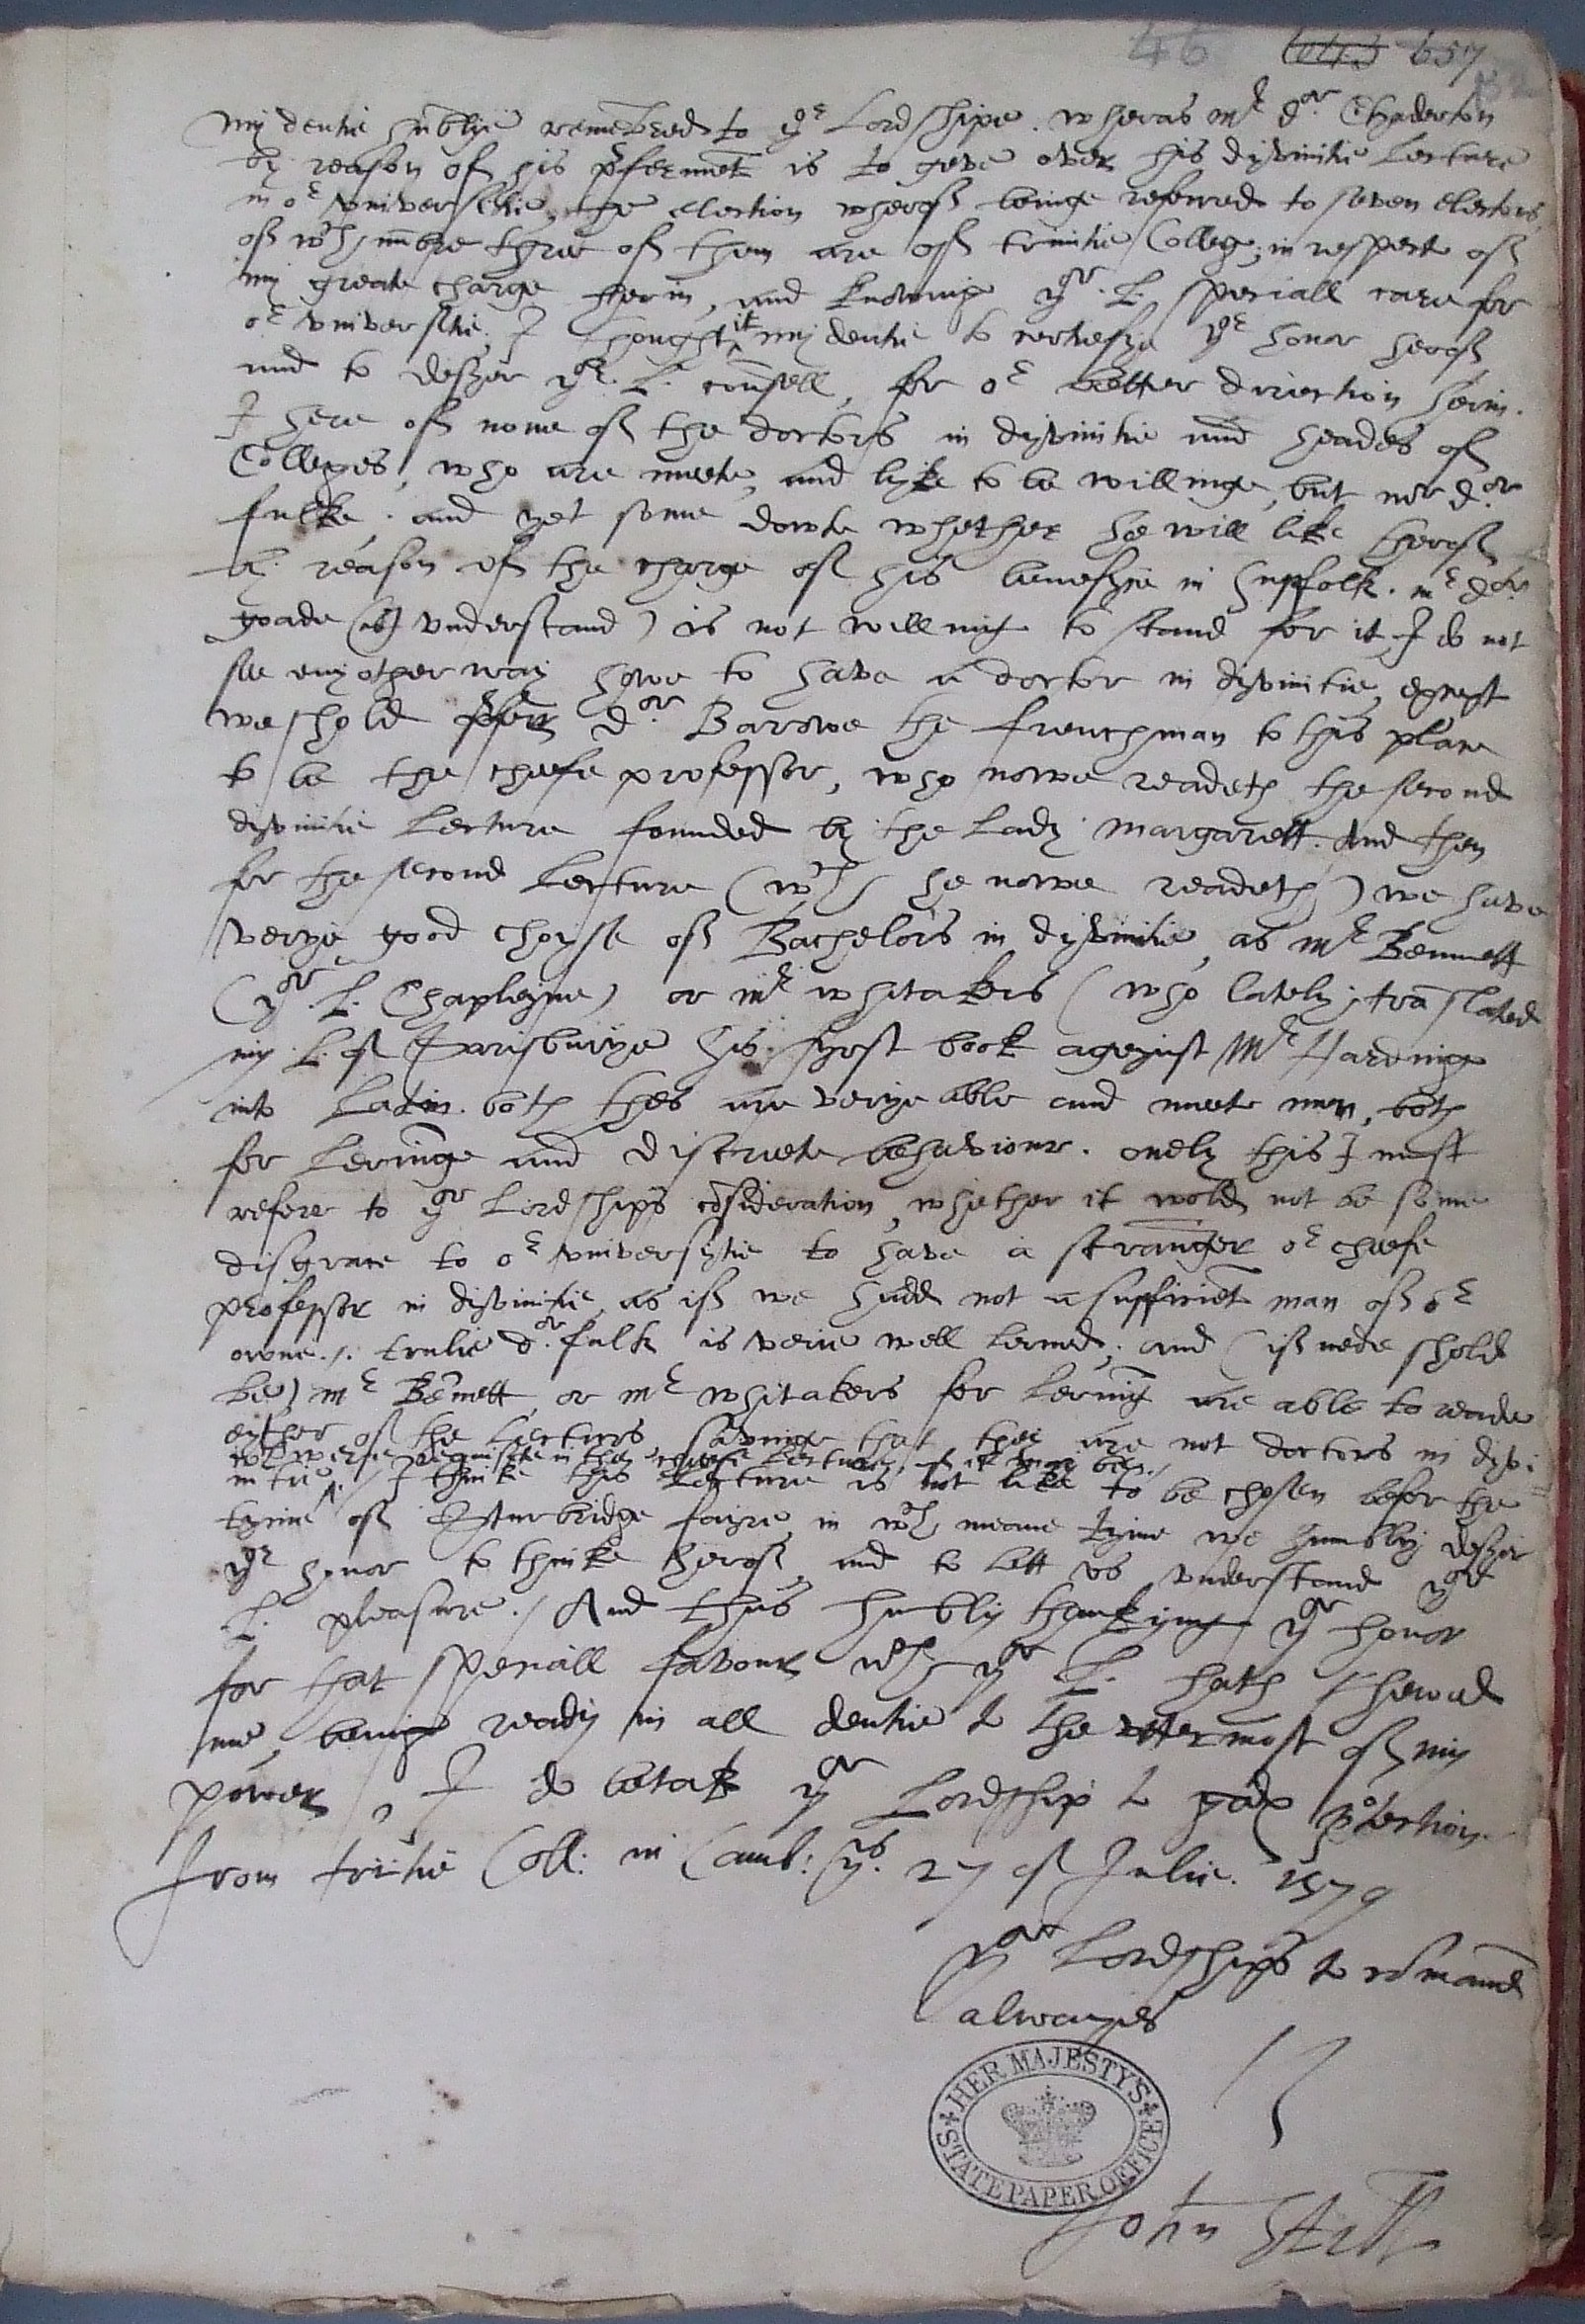 46 657
my deutie hu̅blye reme̅bred to yor Lordshipe. wheras mr dor. Chaderton
by reason of his prferment is to geve over his dyvinitie Lecture
in or universitie, the election wherof beinge referred to seven electors
of wch nu̅bre three of them are of trinitie College, in respect of
my greate charge herin, and knowinge yor. L. speciall care for
or universitie, I thought it my deutie to certefye yor honor herof
and to desyer yor. L. counsell, for or better direction herin.
I here of none of the doctors in dyvinitie and heades of
Colleges, who are meete, and lyke to be willinge, but mr dor
fulke. and yet some dowte whether he will like therof
by reason of the charge of his benefyce in Suffolk. mr dor.
goade (as I understand) is not willing to stand for it, I do not
see any other way howe to have a doctor in dyvinitie, except
we shold prfer dor Barowe the frenchman to this place
to be the cheefe professor, who nowe readeth the second
dyvinitie Lecture founded by the Lady Margarett. And then
for the second Lecture (wch he nowe readeth) we have
verye good choyse of Bachelors in dyvinitie, as mr Bennett
(yor. L. Chapleyne) or mr whitakers (who lately tra̅slated
my L. of Sarisburye his fyrst book ageynst Mr Hardinge
into Latin. both thes are verye able and meete men, both
for Lerninge and discreete behaviour. onely this I must
refere to yor Lordships co̅sideration, whether it wold not be some
disgrace to or universytie to have a stranger or cheefe
professor in dyvinitie, as if we hadd not a sufficie̅t man of or
owne./. trulie dor. fulk is verie well lerned; and (if nede shold
be) mr Be̅nett, or mr whitakers for lerning are able to reade
eyther of the Lectures savinge that they are not doctors in dyvi=
in the cheefe Lecture, if it may bee./
nitie./. I thinke this Lecture is not like to be chosen befor the
tyme of Sturbridge fayre, in wch meane tyme we humbly desyer
yor honor to thinke herof, and to lett us understand yor
L. pleasure./ And thus humbly thankyng yor honor
for that speciall favour wch yor L. hath shewed
me, being ready in all deutie to the uttermost of my
power, I do betak yor Lordship to gods protection.
From tri̅tie Coll: in Camb: this. 27 of Julie. 1579
yor Lordships to co̅maund
alwayes
HER MAJESTY'S STATE PAPER OFFICE
John Still